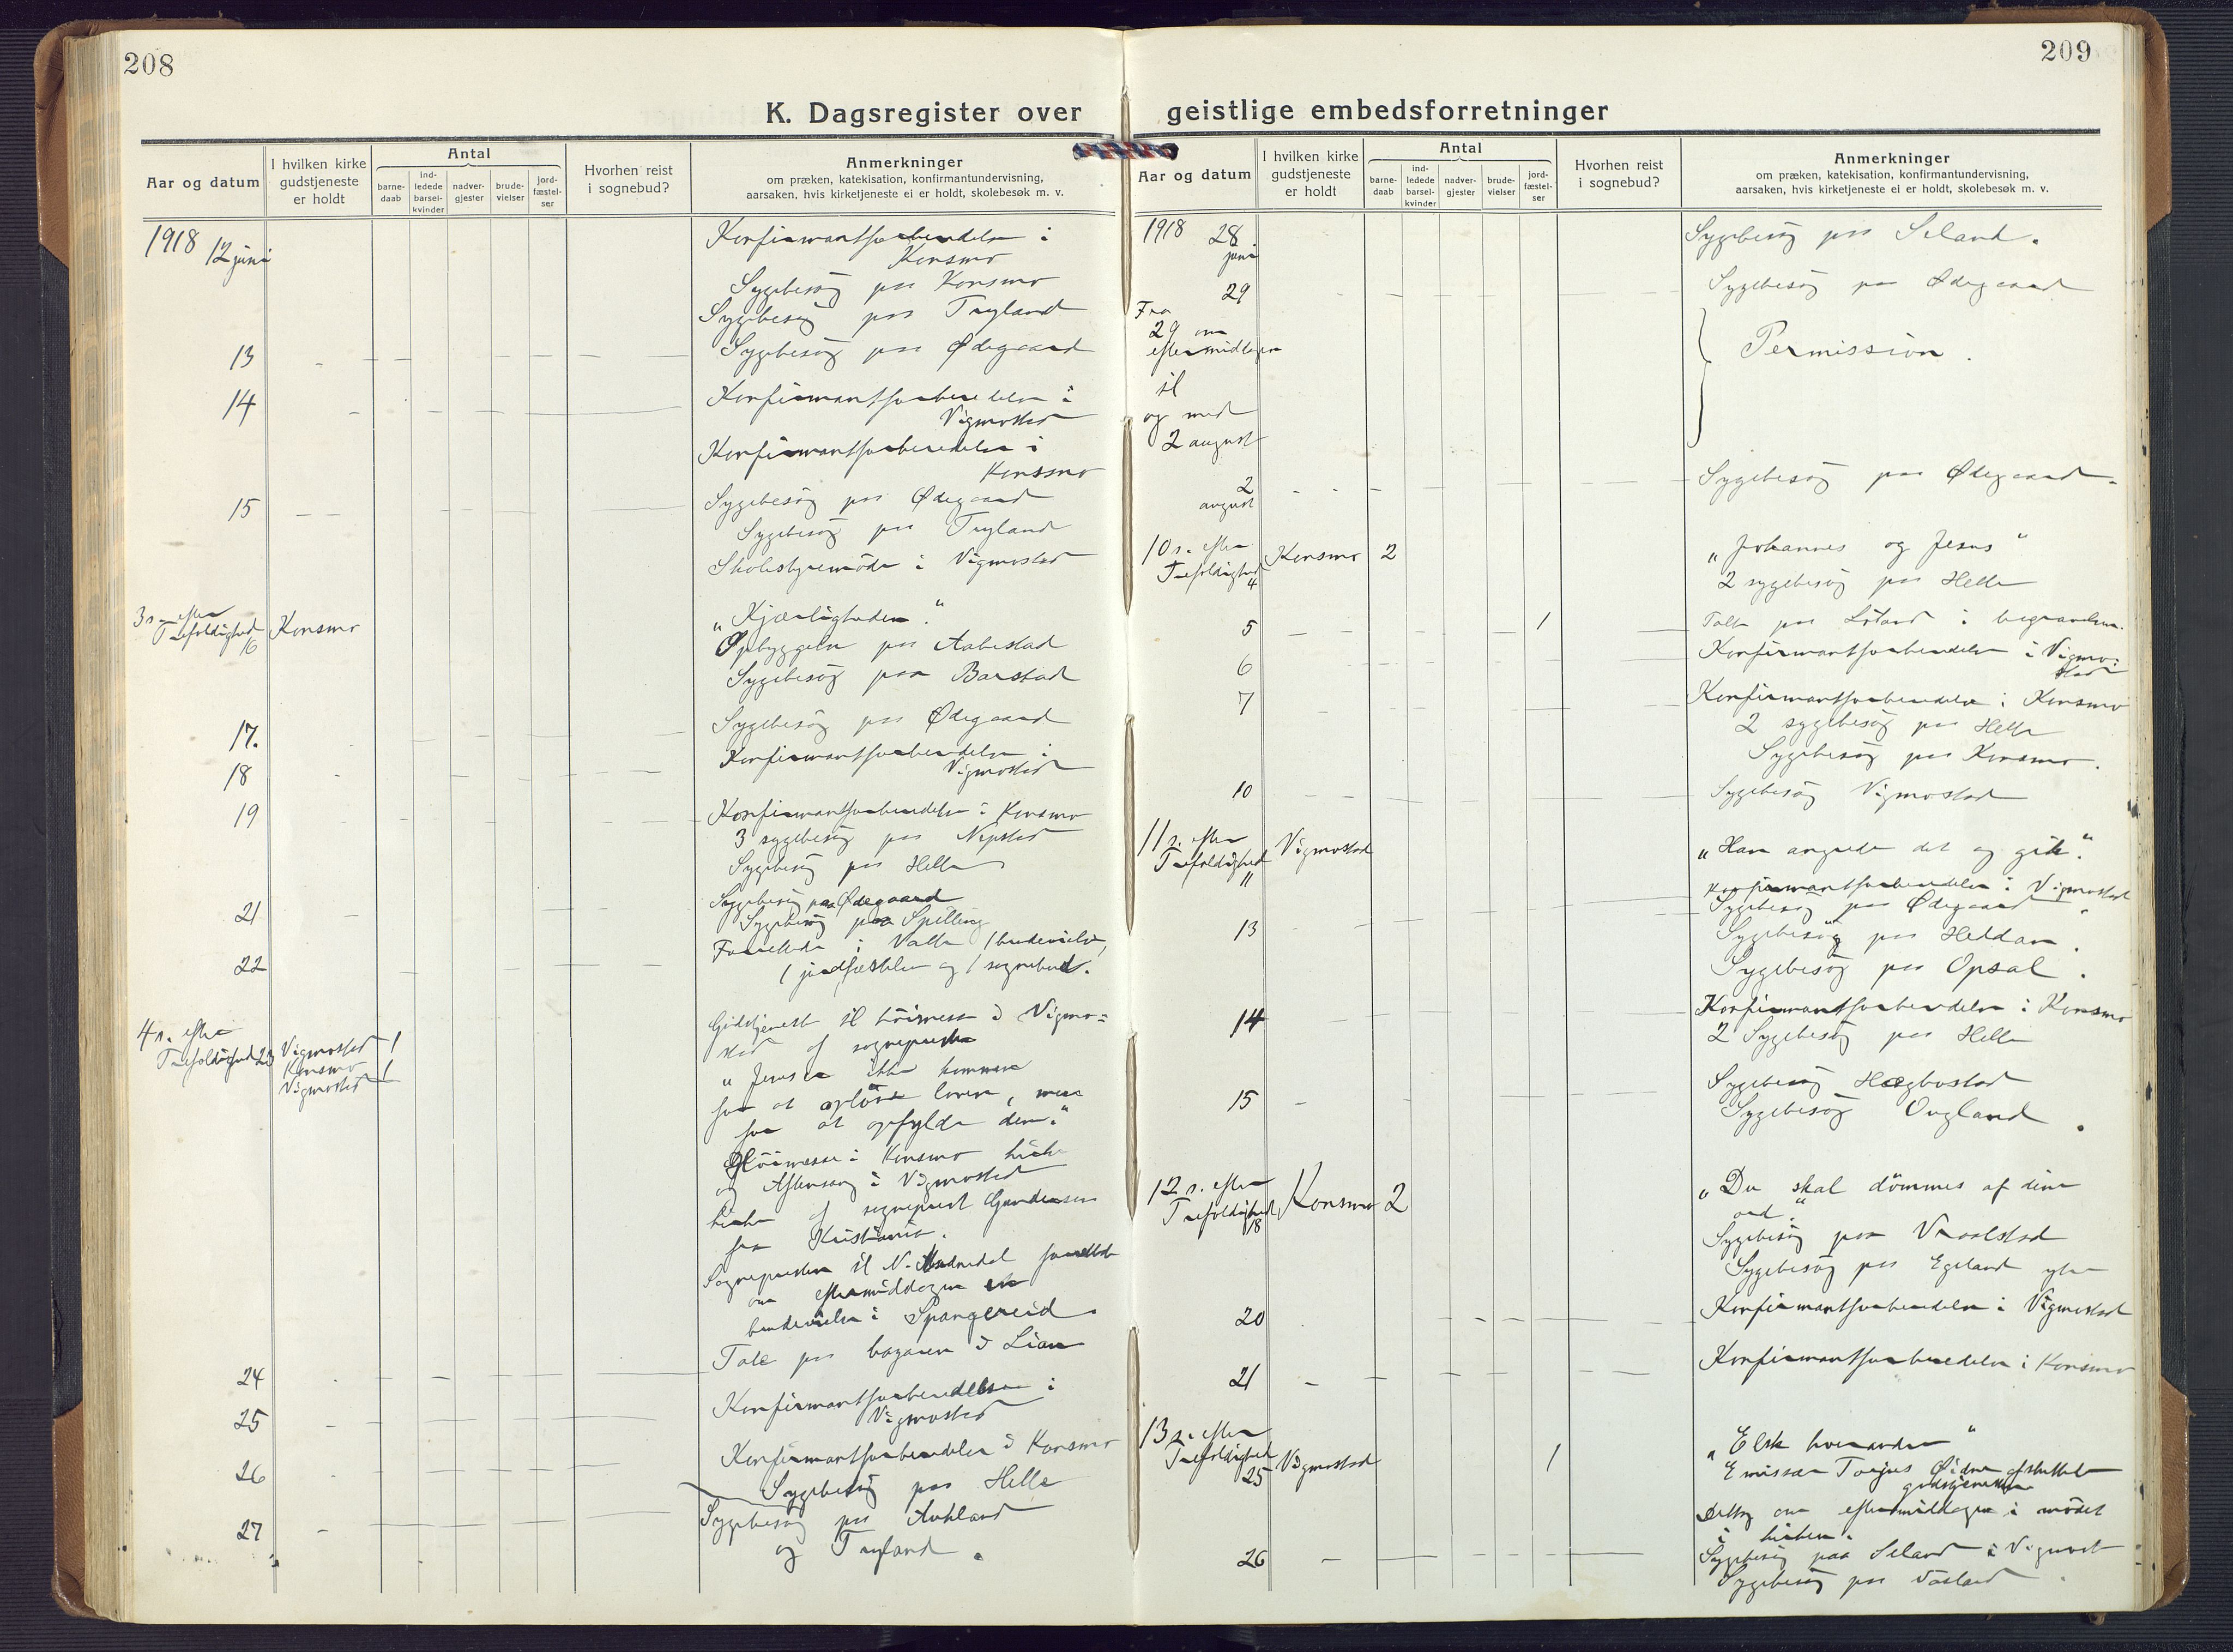 208
K. Dagsregister over
Aar og datum
I hvilken kirke gudstjeneste er holdt
Antal
barne-daab
ind-ledede barsel-kvinder
nadver-gjester
brude-vielser
jord-fæstel-ser
Hvorhen reist i sognebud?
Anmerkninger
om præken, katekisation, konfirmantundervisning,
aarsaken, hvis kirketjeneste ei er holdt, skolebesøk m. v.
1918 12 juni
Konfirmantforberedelse i
Konsmo
Sygebesøg paa Konsmo
Sygebesøg paa Tryland
13
Sygebesøg paa Ødegaard
14
Konfirmantforberedelse i
Vigmostad
Konfirmantforberedelse i
Konsmo
15
Sygebesøg paa Ødegaard
Sygebesøg paa Tryland
Skolestyremöde i Vigmostad
3 s. efter
Trefoldighed
16
Konsmo
„Kjærligheden“.
Opbyggelse paa Aabestad
Sygebesøg paa Barstad
17.
Sygebesøg paa Ødegaard
18
Konfirmantforberedelse i
Vigmostad
19
Konfirmantforberedelse i Konsmo
3 sygebesøg paa Nepstad
Sygebesøg paa Helle
21
Sygebesøg paa Ødegaard
Sygebesøg paa Spilling
22
Forrettede i Valle 1 brudevielse,
1 jordfæstelse og 1 sognebud.
4 s. efter
Trefoldighed 23
Vigmostad 1
Konsmo 1
Vigmostad
Gudstjeneste til höimesse i Vigmo=
stad af sognepresten
„Jesus er ikke kommen
for at opløse loven, men
for at opfylde den“.
Höimesse i Konsmo kirke
og Aftensang i Vigmostad
kirke af sogneprest Gundersen
fra Kristiania.
Sognepresten til N. Audnedal forrettede
om eftermiddagen en
brudevielse i Spangereid.
24
Tale paa bazaren i Lian
25
Konfirmantforberedelse i
Vigmostad
26
Konfirmantforberedelse i Konsmo
Sygebesøg paa Helle
27
Sygebesøg paa
og Tryland.
209
geistlige embedsforretninger
Aar og datum
I hvilken kirke gudstjeneste er holdt
Antal
barne-daab
ind-ledede barsel-kvinder
nadver-gjester
brude-vielser
jord-fæstel-ser
Hvorhen reist i sognebud?
Anmerkninger
om præken, katekisation, konfirmantundervisning,
aarsaken, hvis kirketjeneste ei er holdt, skolebesøk m. v.
1918 28 juni
Sygebesøg paa Seland.
29
Sygebesøg paa Ødegaard
Fra
29 om
eftermiddagen
til
og med
2 august
Permission.
2
august
Sygebesøg paa Ødegaard.
10 s. efter
Trefoldighed
4
Konsmo 2
„Johannes og Jesus“
2 sygebesøg paa Helle
5
1
Talte paa i begravelse.
6
Konfirmantforberedelse i Vigmo=
stad
7
Konfirmantforberedelse i Konsmo
2 sygebesøg paa Helle
Sygebesøg paa Konsmo.
10
Sygebesøg Vigmostad
11 s. efter
Trefoldighed
11
Vigmostad
„Han angrede det og gik“.
13
Konfirmantforberedelse i Vigmostad
Sygebesøg paa Ødegaard
Sygebesøg paa Heddan.
Sygebesøg paa Opsal.
14
Konfirmantforberedelse i Konsmo
2 Sygebesøg paa Helle
15
Sygebesøg Hægbostad
Sygebesøg
12 s. efter
Trefoldighed
18
Konsmo 2
„Du skal dömmes af dine
ord.“
Sygebesøg paa
Sygebesøg paa Egeland ytre
20
Konfirmantforberedelse i Vigmostad
21
Konfirmantforberedelse i Konsmo
13 s. efter
Trefoldighed
25
Vigmostad
1
„Elsk hverandre“
Emissær Torjus afsluttet
gudstjenesten
om eftermiddagen i mödet
i kirken.
26
Sygebesøg paa Seland i
Sygebesøg paa